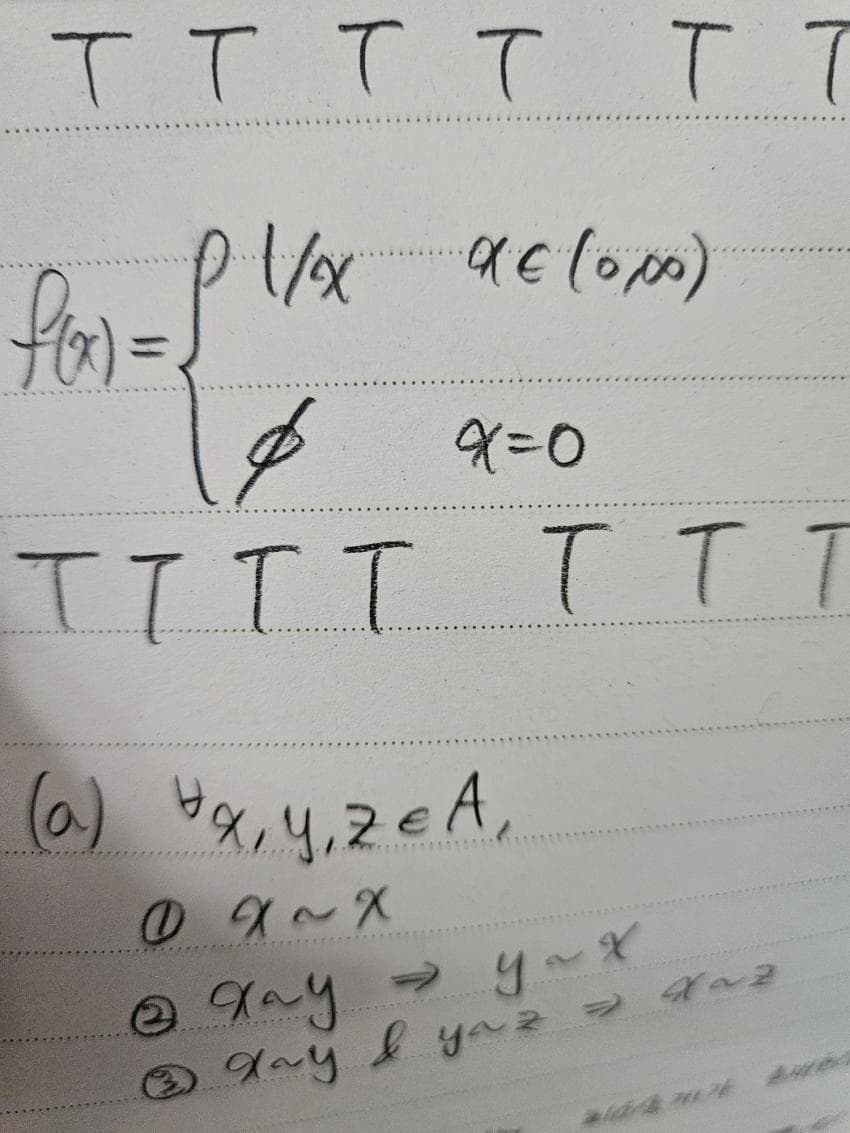 T T T T T T
f(x) = { 1/x x ∈ (0,∞)
∅ x=0
T T T T T T T
(a) ∀x, y, z ∈ A,
① x ~ x
② x~y ⇒ y ~ x
③ x~y & y~z ⇒ x~z